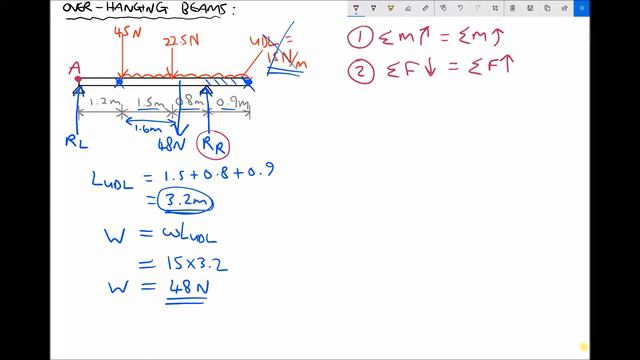 OVER-HANGING BEAMS:
45N
22.5N
UDL =
15N/m
A
1.2m
1.5m
0.8m
0.9m
1.6m
RL
48N
RR
LUDL = 1.5 + 0.8 + 0.9
= 3.2m
W = ωLUDL
= 15 × 3.2
W = 48N
① ΣM↑ = ΣM↑
② ΣF↓ = ΣF↑